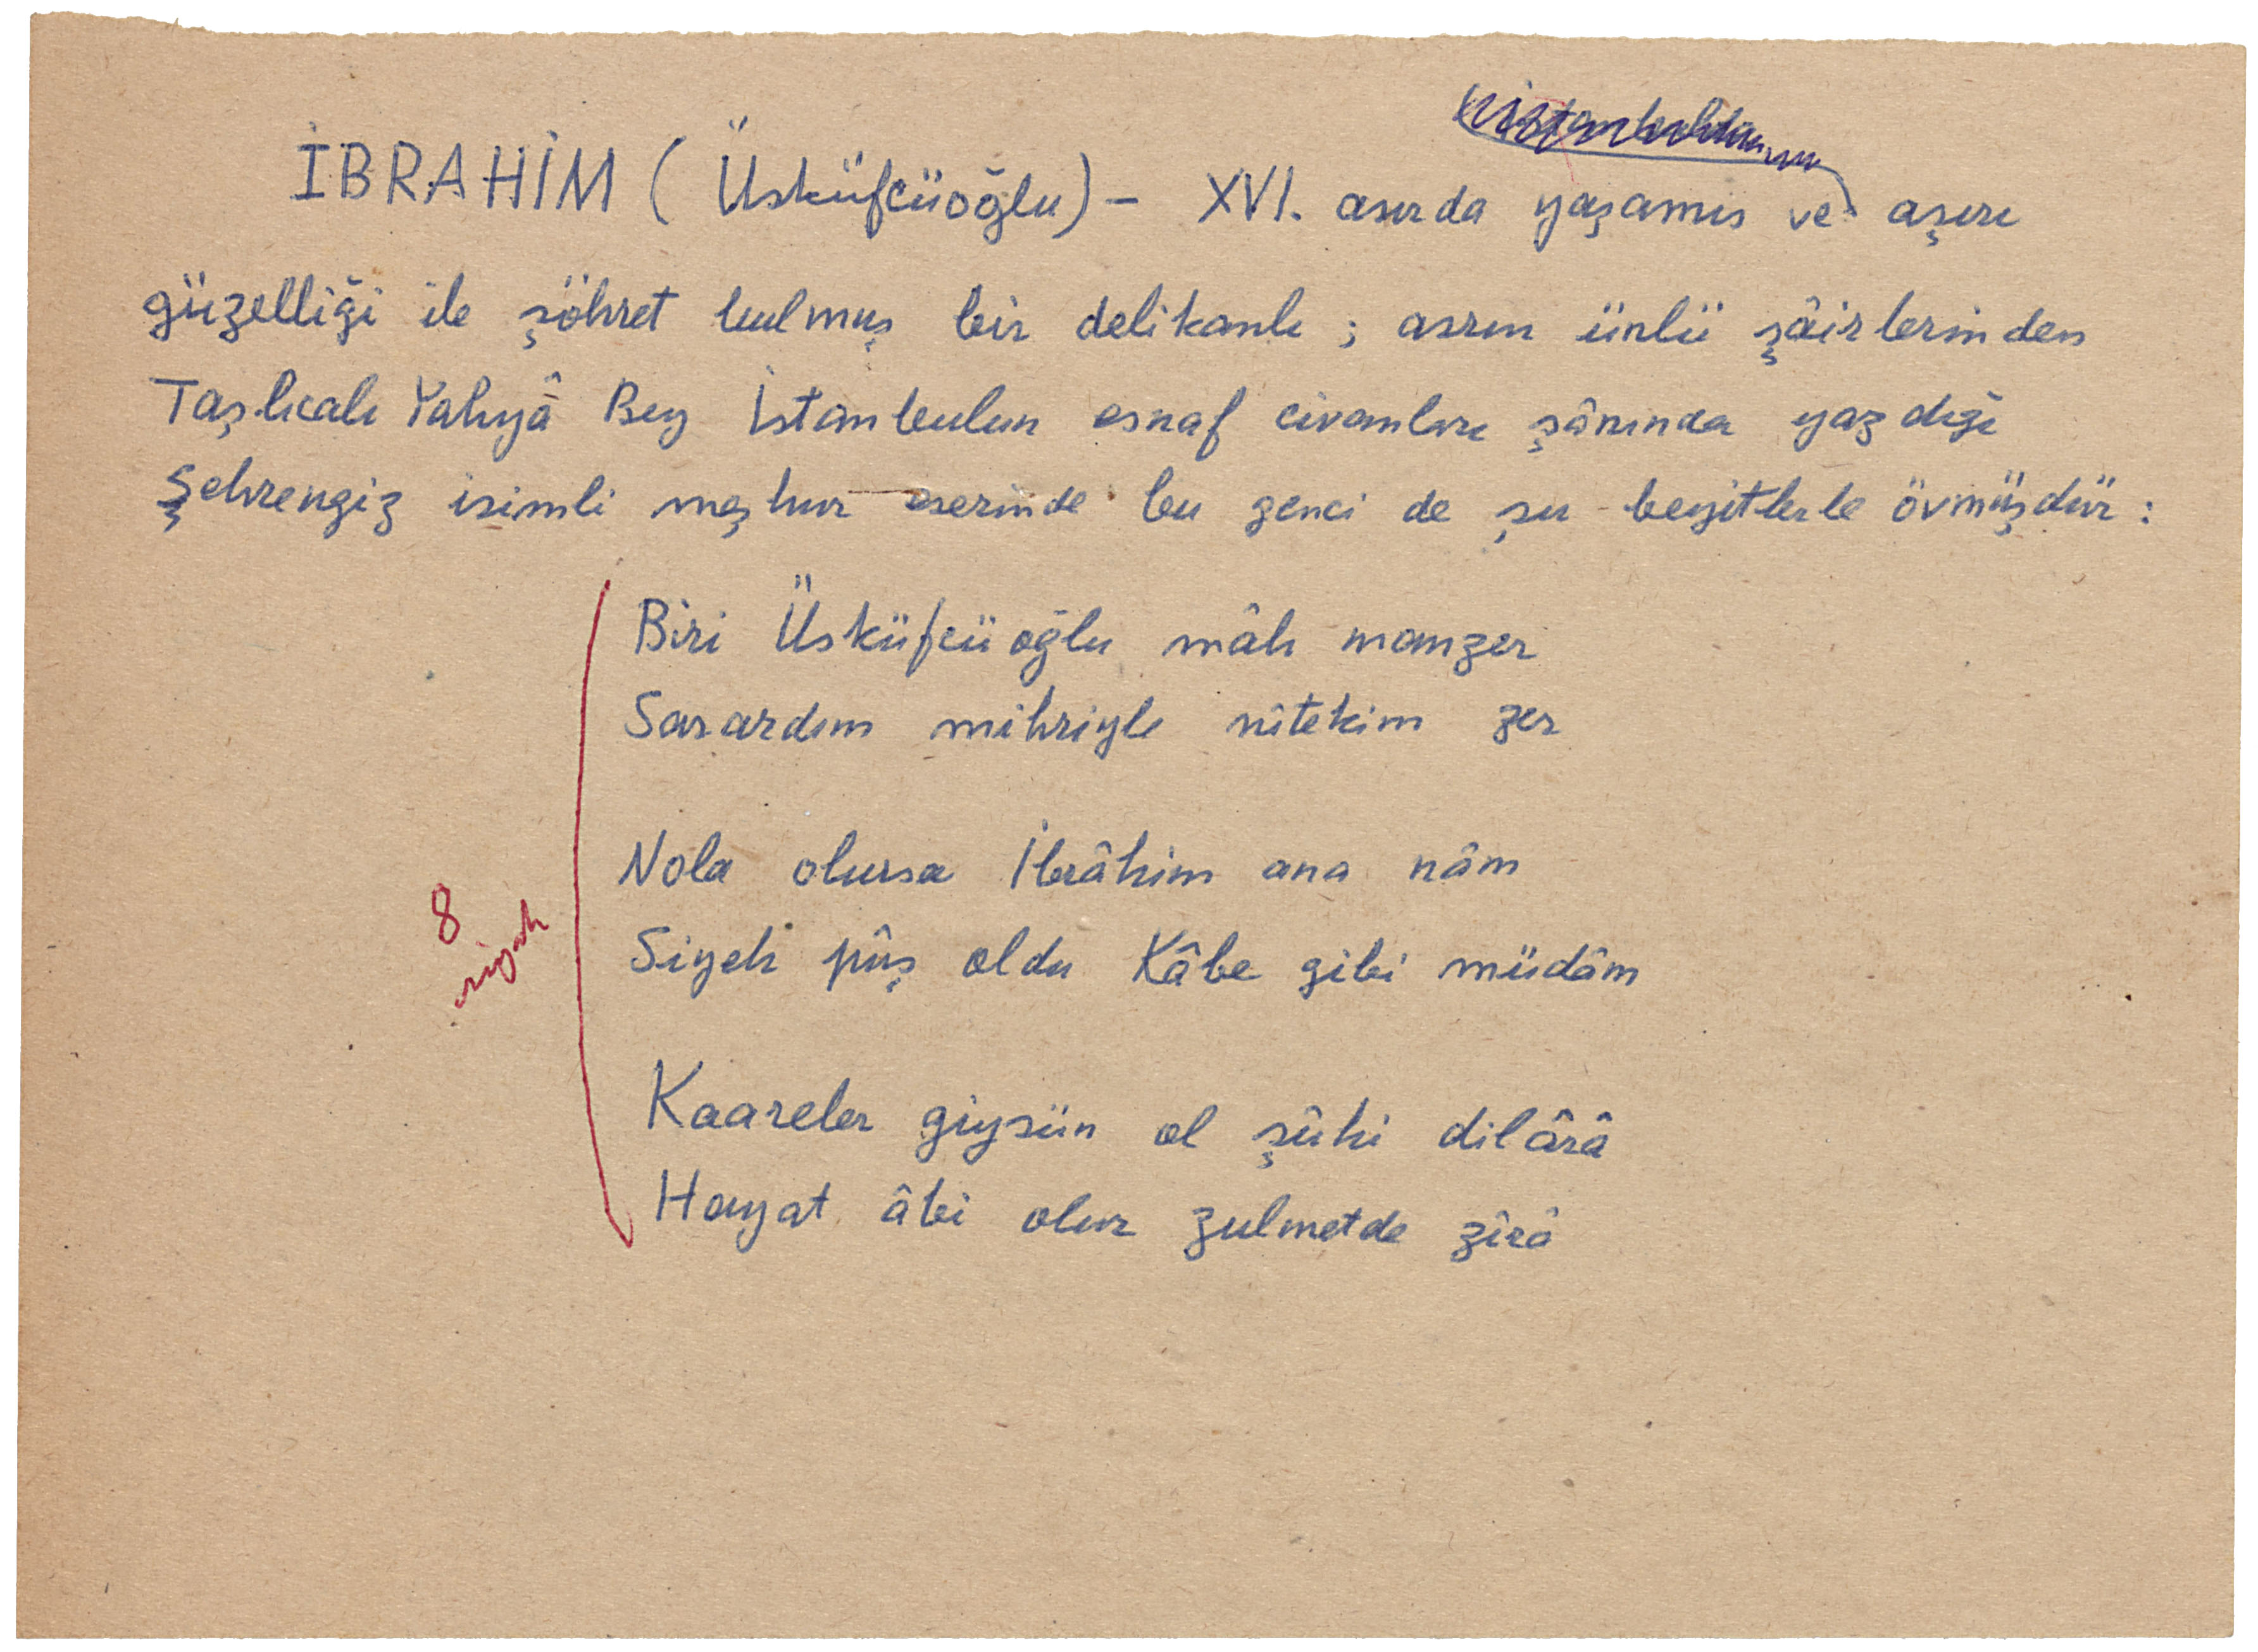 İBRAHİM (Üsküfcüoğlu) - XVI. asırda yaşamış ve aşırı
güzelliği ile şöhret bulmuş bir delikanlı ; asrın ünlü şâirlerinden
Taşlıcalı Yahyâ Bey İstanbulun esnaf civanları şânında yazdığı
Şehrengiz isimli meşhur eserinde bu genci de şu beyitlerle övmüşdür :
Biri Üsküfcüoğlu mâh manzer
Sarardım mihriyle nitekim zer
Nola olursa İbrâhim ana nâm
Siyeh pûş oldu Kâbe gibi müdâm
8
siyah
Kaareler giysün ol şûhi dilârâ
Hayat âbi olur zulmetde zîrâ